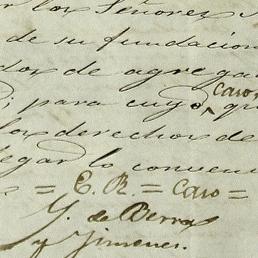 los Señores
de su fundacion
dor de agrega
caso
; para cuyo qu
los derechos de
legar lo conveni
= E. R. = caso =
Y. de Berra
y Jimenes.